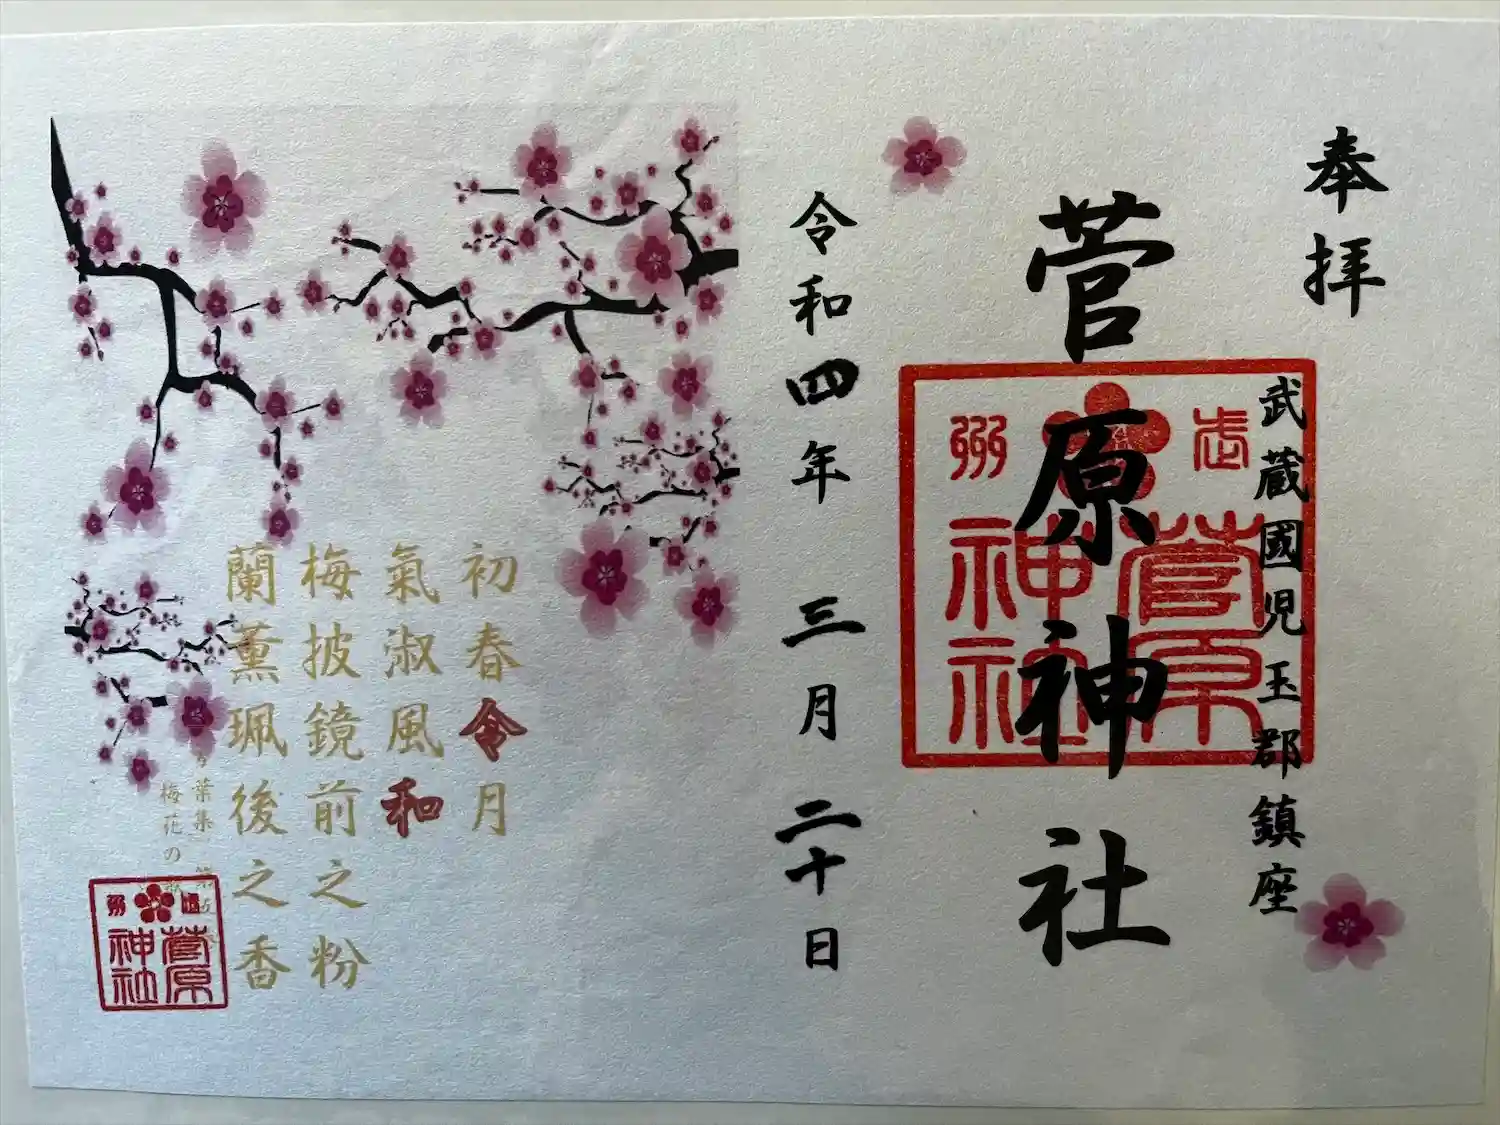 奉拝
武蔵國児玉郡鎮座
菅原神社
武州
菅原
神社
令和四年 三月 二十日
初春令月
氣淑風和
梅披鏡前之粉
蘭薫珮後之香
葉集
梅花の
菅原
神社